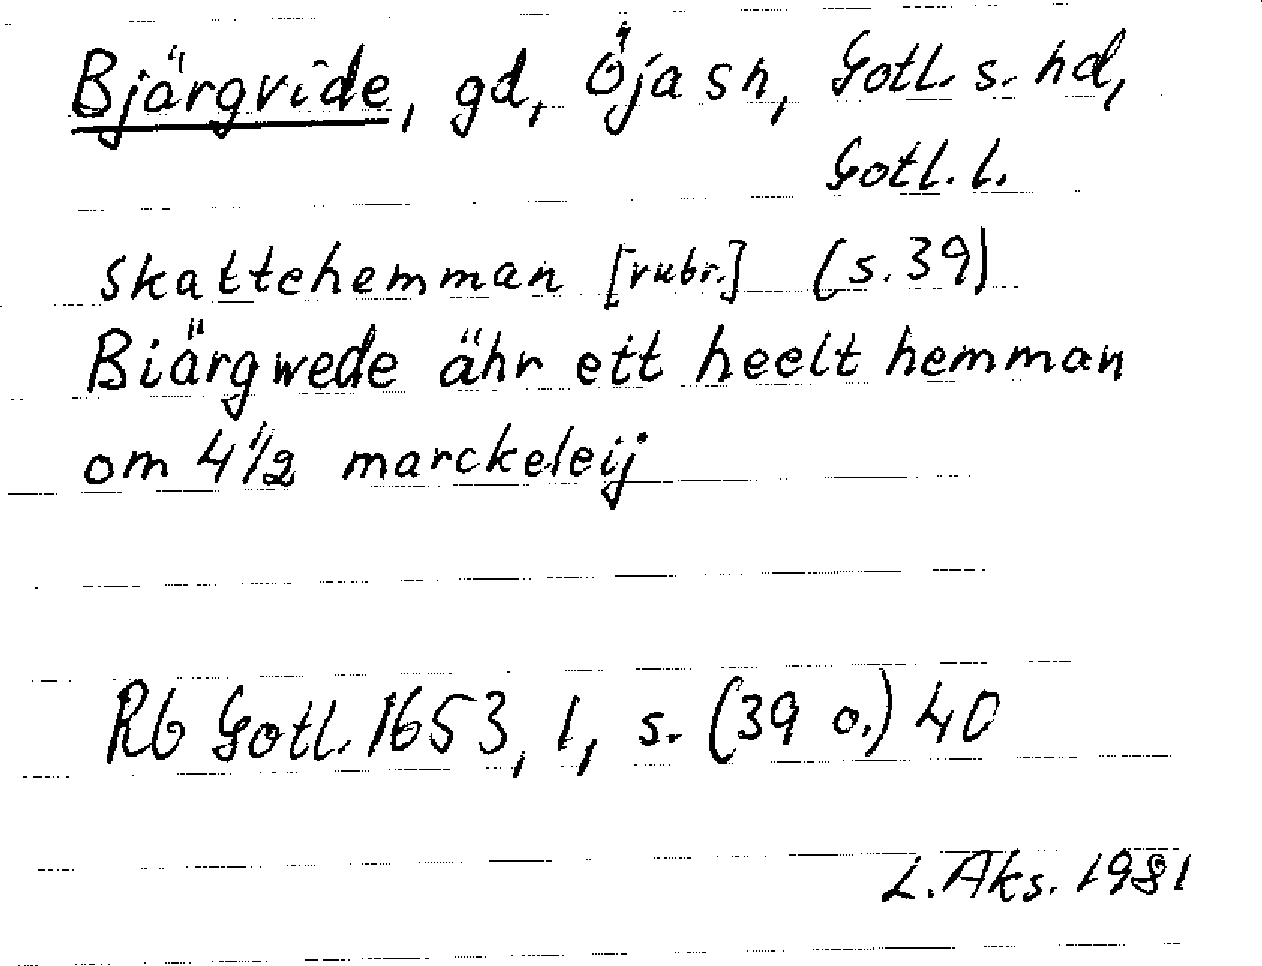 Bjärgvide, gd, Öja sn, Gotl. s. hd,
Gotl. l.
Skattehemman [rubr.] (s. 39)
Biärgwede ähr ett heelt hemman
om 4 1/2 marckeleij
Rb Gotl. 1653, 1, s. (39 o.) 40
L. Aks. 1981